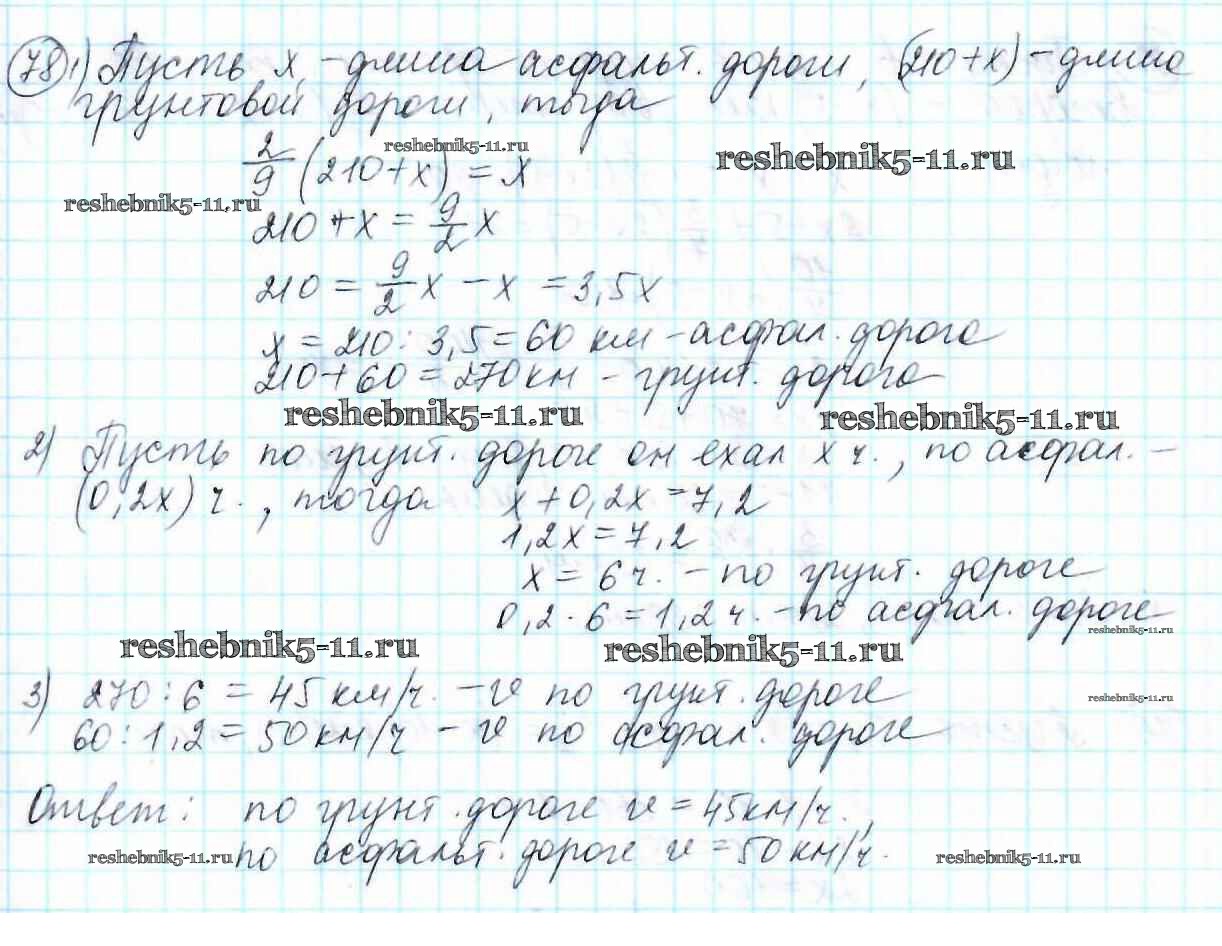 78 1) Пусть x - длина асфальт. дороги, (210+x) - длина
грунтовой дороги, тогда
reshebnik5-11.ru
2/9 (210+x) = x
reshebnik5-11.ru
reshebnik5-11.ru
210+x = 9/2 x
210 = 9/2 x - x = 3,5x
x = 210 : 3,5 = 60 км - асфал. дорога
210+60 = 270 км - грунт. дорога
reshebnik5-11.ru reshebnik5-11.ru
2) Пусть по грунт. дороге он ехал x ч., по асфал. -
(0,2x) ч., тогда x + 0,2x = 7,2
1,2x = 7,2
x = 6 ч. - по грунт. дороге
0,2 · 6 = 1,2 ч. - по асфал. дороге
reshebnik5-11.ru
reshebnik5-11.ru reshebnik5-11.ru
3) 270 : 6 = 45 км/ч. - v по грунт. дороге
reshebnik5-11.ru
60 : 1,2 = 50 км/ч - v по асфал. дороге
Ответ: по грунт. дороге v = 45 км/ч.,
reshebnik5-11.ru по асфальт. дороге v = 50 км/ч.
reshebnik5-11.ru